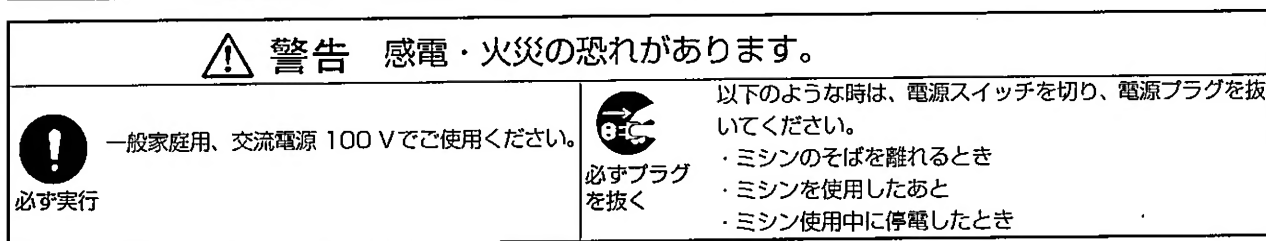 警告 感電・火災の恐れがあります。
一般家庭用、交流電源 100 Vでご使用ください。
必ず実行
必ずプラグ
を抜く
以下のような時は、電源スイッチを切り、電源プラグを抜
いてください。
・ミシンのそばを離れるとき
・ミシンを使用したあと
・ミシン使用中に停電したとき